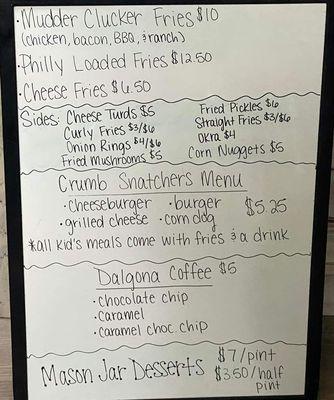 ·Mudder Clucker Fries $10
(chicken, bacon, BBQ, & ranch)
·Philly Loaded Fries $12.50
·Cheese Fries $6.50
Sides: Cheese Turds $5
Curly Fries $3/$6
Onion Rings $4/$6
Fried Mushrooms $5
Fried Pickles $6
Straight Fries $3/$6
Okra $4
Corn Nuggets $5
Crumb Snatchers Menu
·cheeseburger ·burger
·grilled cheese ·corn dog
$5.25
*all kid's meals come with fries & a drink
Dalgona Coffee $5
·chocolate chip
·caramel
·caramel choc. chip
Mason Jar Desserts
$7/pint
$3.50/half
pint